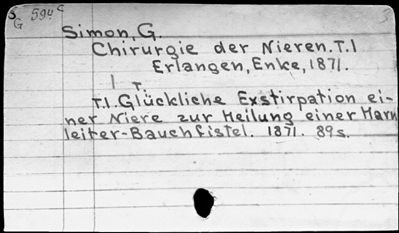 S 594 c
G
Simon, G.
Chirurgie der Nieren. T.1
Erlangen, Enke, 1871.
1 T.
T.1. Glückliche Exstirpation ei-
ner Niere zur Heilung einer Harn
leiter-Bauchfistel. 1871. 89s.